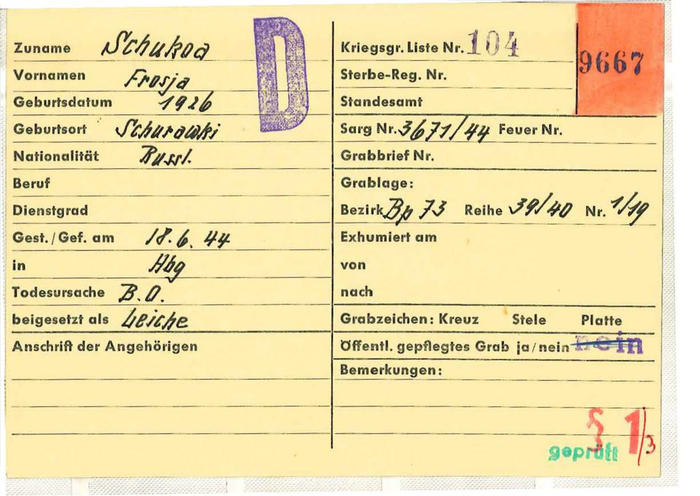 Zuname Schukoa
Vornamen Frosja
Geburtsdatum 1926
Geburtsort Schurawki
Nationalität Russl.
Beruf
Dienstgrad
Gest./Gef. am 18.6.44
in Hbg
Todesursache B.O.
beigesetzt als Leiche
Anschrift der Angehörigen
D
Kriegsgr. Liste Nr. 104
9667
Sterbe-Reg. Nr.
Standesamt
Sarg Nr. 3671/44 Feuer Nr.
Grabbrief Nr.
Grablage:
Bezirk Bp 73 Reihe 39/40 Nr. 1/19
Exhumiert am
von
nach
Grabzeichen: Kreuz Stele Platte
Öffentl. gepflegtes Grab ja/nein nein
Bemerkungen:
§ 1/3
geprüft